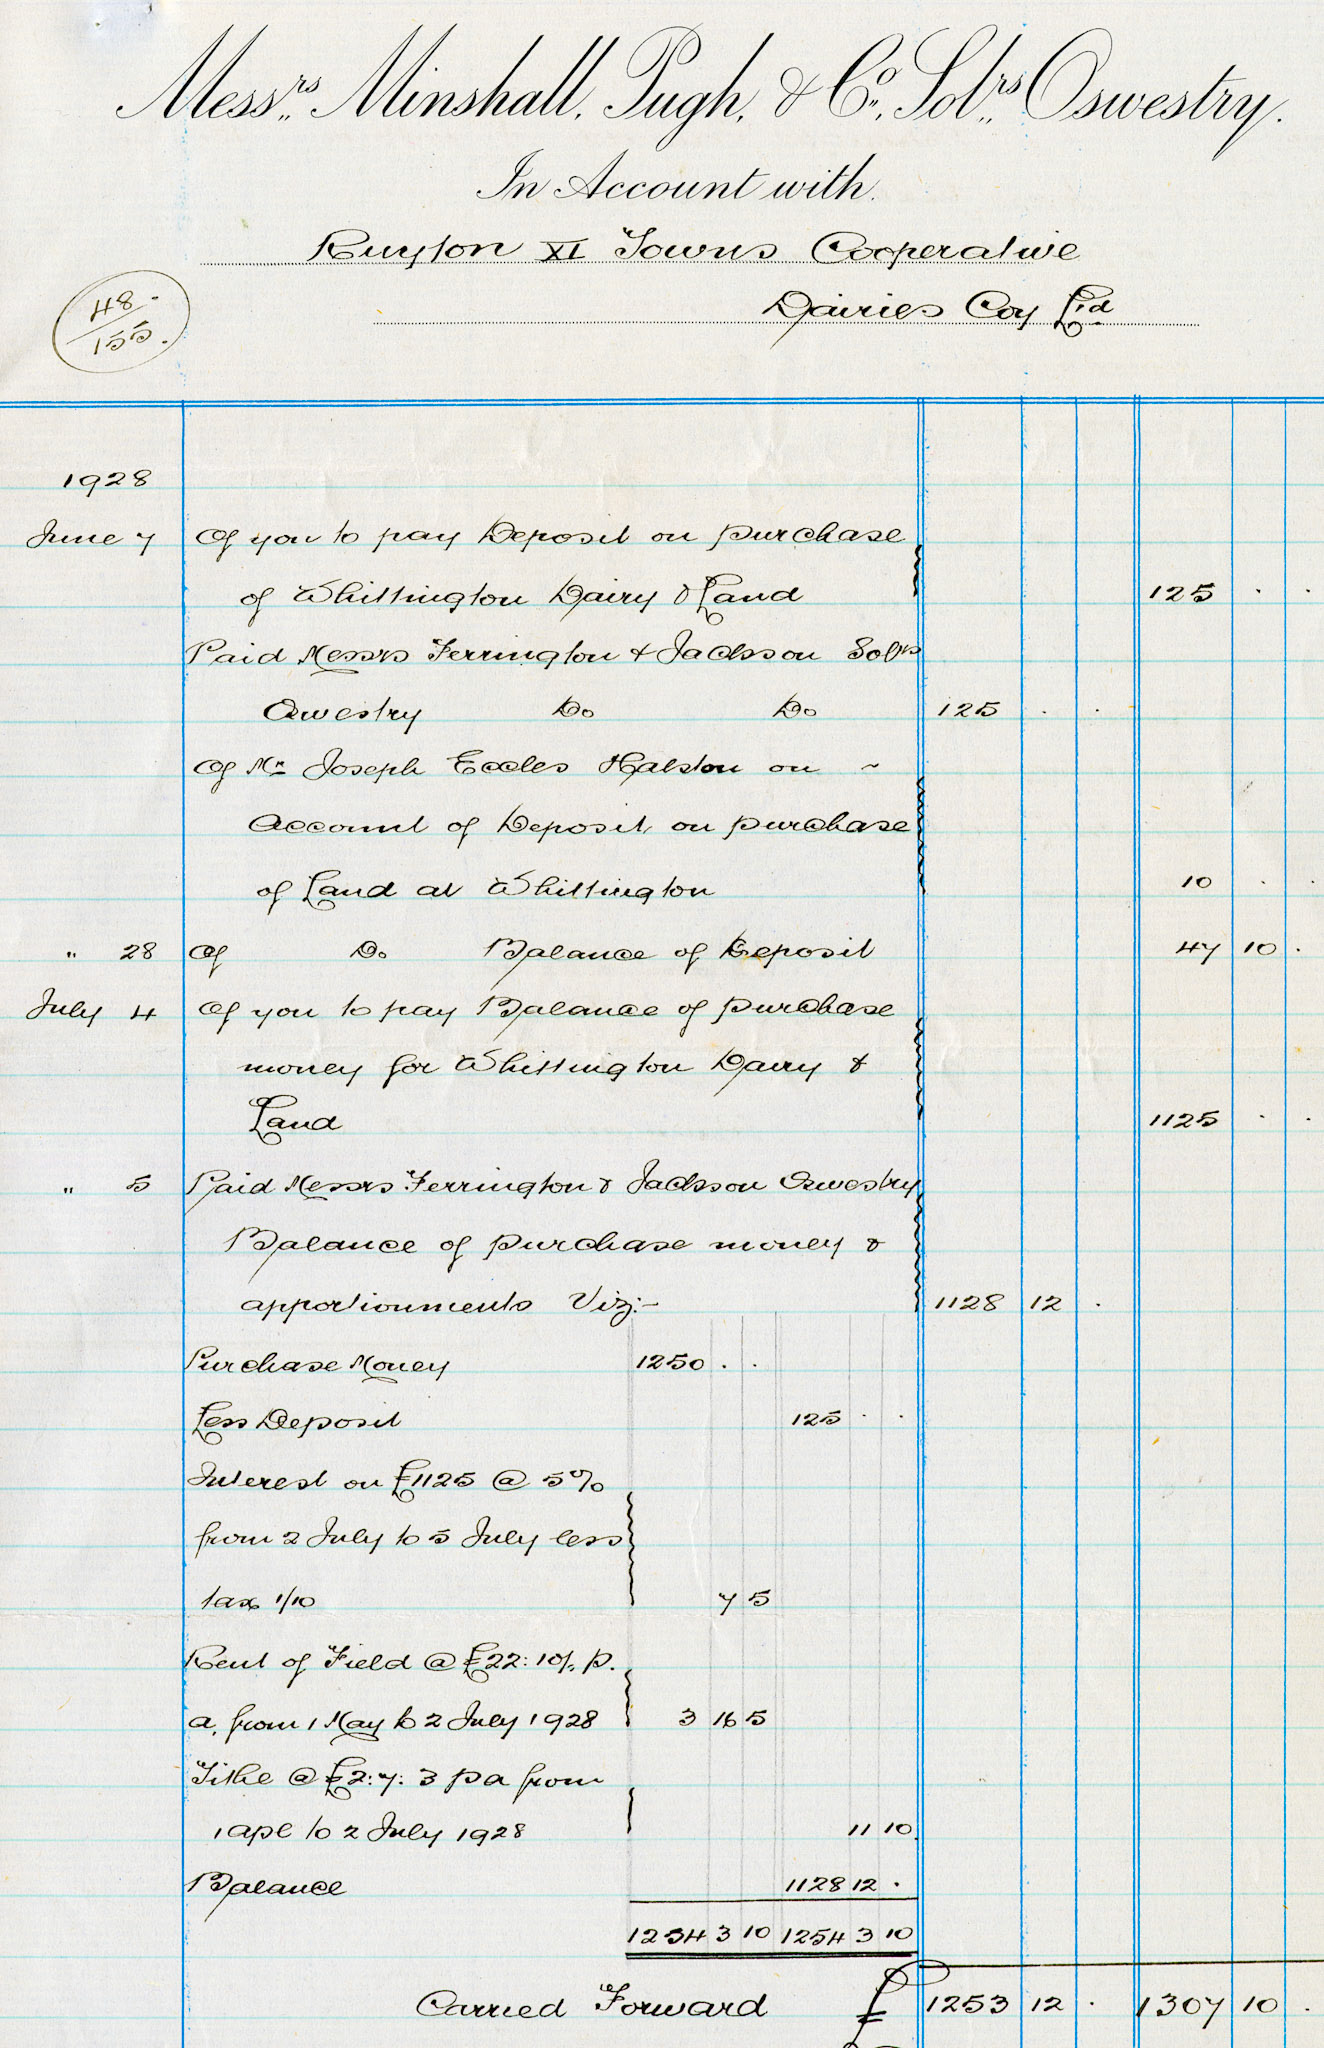 Messrs. Minshall, Pugh, & Co., Solrs. Oswestry.
In Account with
Ruyton XI Towns Cooperative
Dairies Coy Ltd
48.
155.
1928
June 7 Of you to pay Deposit on purchase
of Whittington Dairy & Land 125 . .
Paid Messrs Ferrington & Jackson Solrs
Oswestry Do Do 125 . .
Of Mr Joseph Eccles Halston on ~
Account of Deposit on purchase
of Land at Whittington 10 . .
" 28 Of Do Balance of Deposit 47 10 .
July 4 Of you to pay Balance of purchase
money for Whittington Dairy &
Land 1125 . .
" 5 Paid Messrs Ferrington & Jackson Oswestry
Balance of purchase money &
apportionments Viz:- 1128 12 .
Purchase Money 1250 . .
Less Deposit 125 . .
Interest on £1125 @ 5%
from 2 July to 5 July less
tax 1/10 7 5
Rent of Field @ £22:10/- p.
a. from 1 May to 2 July 1928 3 16 5
Tithe @ £2:7:3 pa from
1 apl to 2 July 1928 11 10
Balance 1128 12 .
1254 3 10 1254 3 10
Carried Forward £ 1253 12 . 1307 10 .